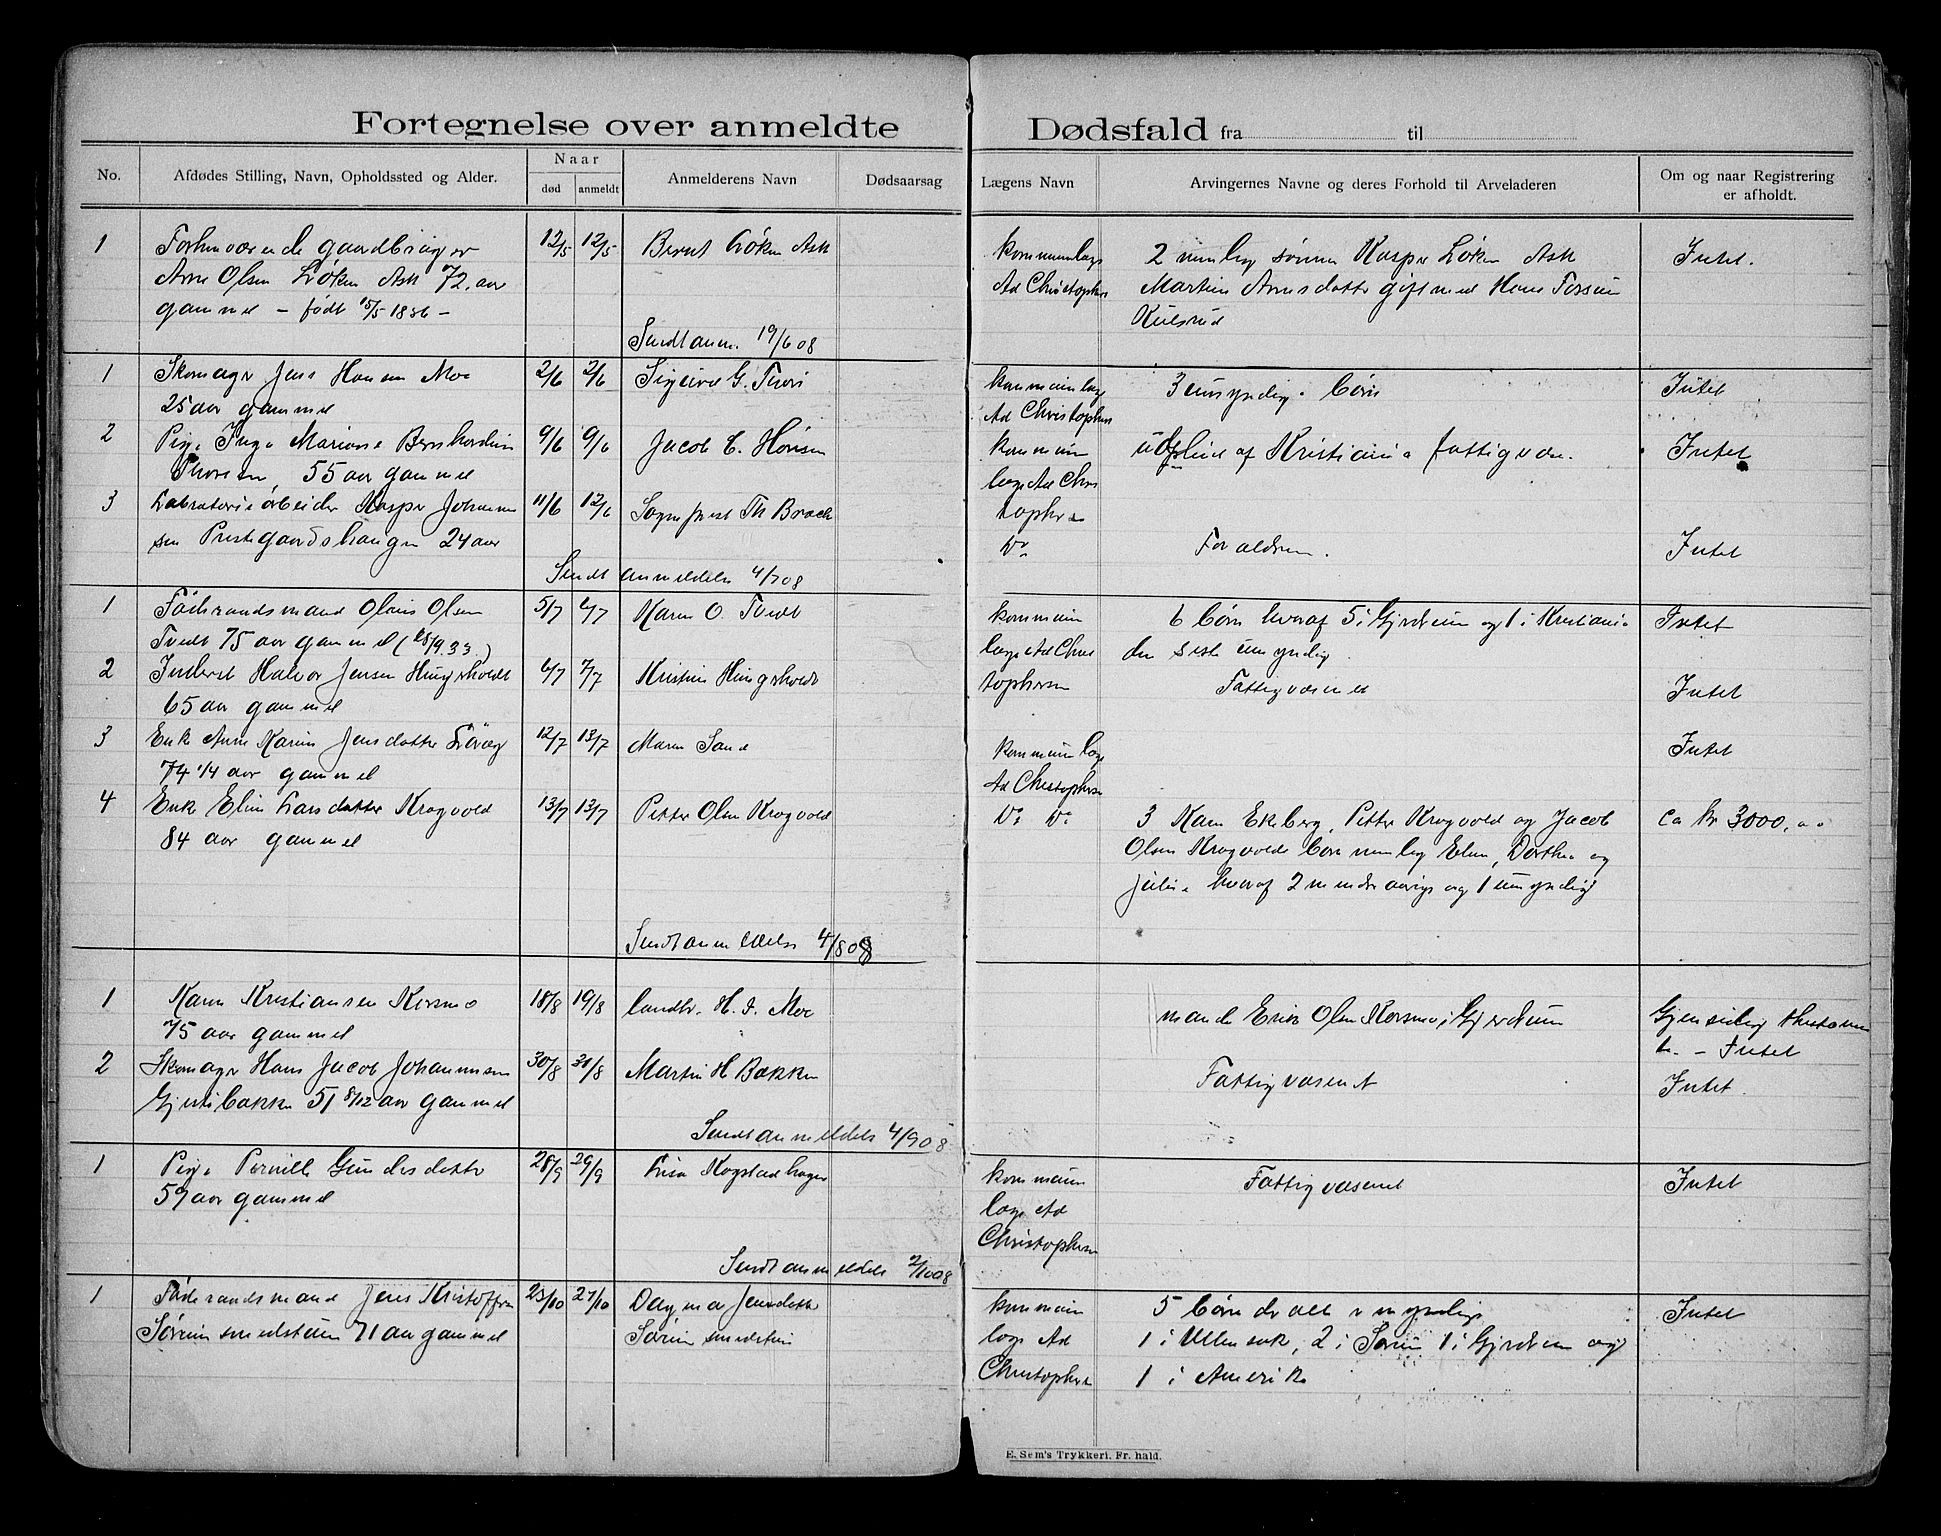 Fortegnelse over anmeldte Dødsfald fra til
No.
Afdødes Stilling, Navn, Opholdssted og Alder.
Naar
død
anmeldt
Anmelderens Navn
Dødsaarsag
Lægens Navn
Arvingernes Navne og deres Forhold til Arveladeren
Om og naar Registrering
er afholdt.
1 Forhenværende gaardbruger 12/5 12/5 Bernt Løken Ask
Arne Olsen Løken Ask 72 aar
gammel – født 15/5 1836 –
Sendt anm. 19/6 08
kommunelæge 2 nemlig sønnen Kasper Løken Ask Intet.
Ad Christophers Martine Arnesdatter gift med Hans Fossum
Kulsrud
1 Skomager Jens Hansen Moe 2/6 2/6
25 aar gammel
2 Pige Inga Marianne Bernhardine 9/6 9/6 Jacob C. Hønsen
Thoresen, 55 aar gammel
3 Labratoriearbeider Kasper Johannes 11/6 12/6 Sogneprest Th Brock
sen Prestegaardshaugen 24 aar
Sendt anmeldelse 4/7 08
kommunelæge 3 umyndige Børn Intet
Ad Christophers
kommune af Kristiania fattigvæsen. Intet
læge Ad Chris
tophersen
Do Forældrene. Intet
1 Føderaadsmand Olaus Olsen 5/7 6/7 Karen O. Tvedt
Tvedt 75 aar gammel (28/9 33.)
2 Inderst Halvor Jensen Hungerholdt 6/7 7/7 Kristine Hungerholdt
65 aar gammel
3 Enke Anne Karine Jensdatter 12/7 13/7 Maren Sand
74 1/4 aar gammel
4 Enke Eline Larsdatter Krogvold 13/7 13/7 Petter Olsen Krogvold
84 aar gammel
Sendt anmeldelse 4/8 08
kommune 6 Børn hvoraf 5 i Gjerdrum og 1 i Kristiania Intet
læge Ad Chris den siste umyndig.
tophersen Fattigvæsenet Intet
kommunelæge Intet
Ad Christophersen
Do Do 3 Karen Ekeberg, Petter Krogvold og Jacob ca Kr 3000,00
Olsen Krogvolds Børn nemlig Elen, Dorthea og
Julie hvoraf 2 mindreaarige og 1 umyndig
1 Karen Kristiansen Korsmo 18/8 19/8 landh. H. J. Moe
75 aar gammel
2 Skomager Hans Jacob Johannessen 30/8 31/8 Martin H Bakken
Gjestibakken 51 8/12 aar gammel
Sendt anmeldelse 4/9 08
manden Erik Olsen Korsmo i Gjerdrum Gjensidig thestamen
t. – Intet
Fattigvæsenet Intet
1 Pige Pernille Gundersdatter 28/9 29/9 Kogstadhagen
59 aar gammel
Sendt anmeldelse 2/10 08
kommune Fattigvæsenet Intet
læge Ad
Christophersen
1 Føderaadsmand Jens Kristoffersen 23/10 27/10 Dagmar Jensdatter
Sørum smedstuen 71 aar gammel Sørum smedstuen
kommune 5 Børn der alle er myndige Intet
læge Ad 1 i Ullensaker, 2 i Sørum 1 i Gjerdrum og
Christophersen 1 i Amerika
E. Sem's Trykkeri. Fr. hald.